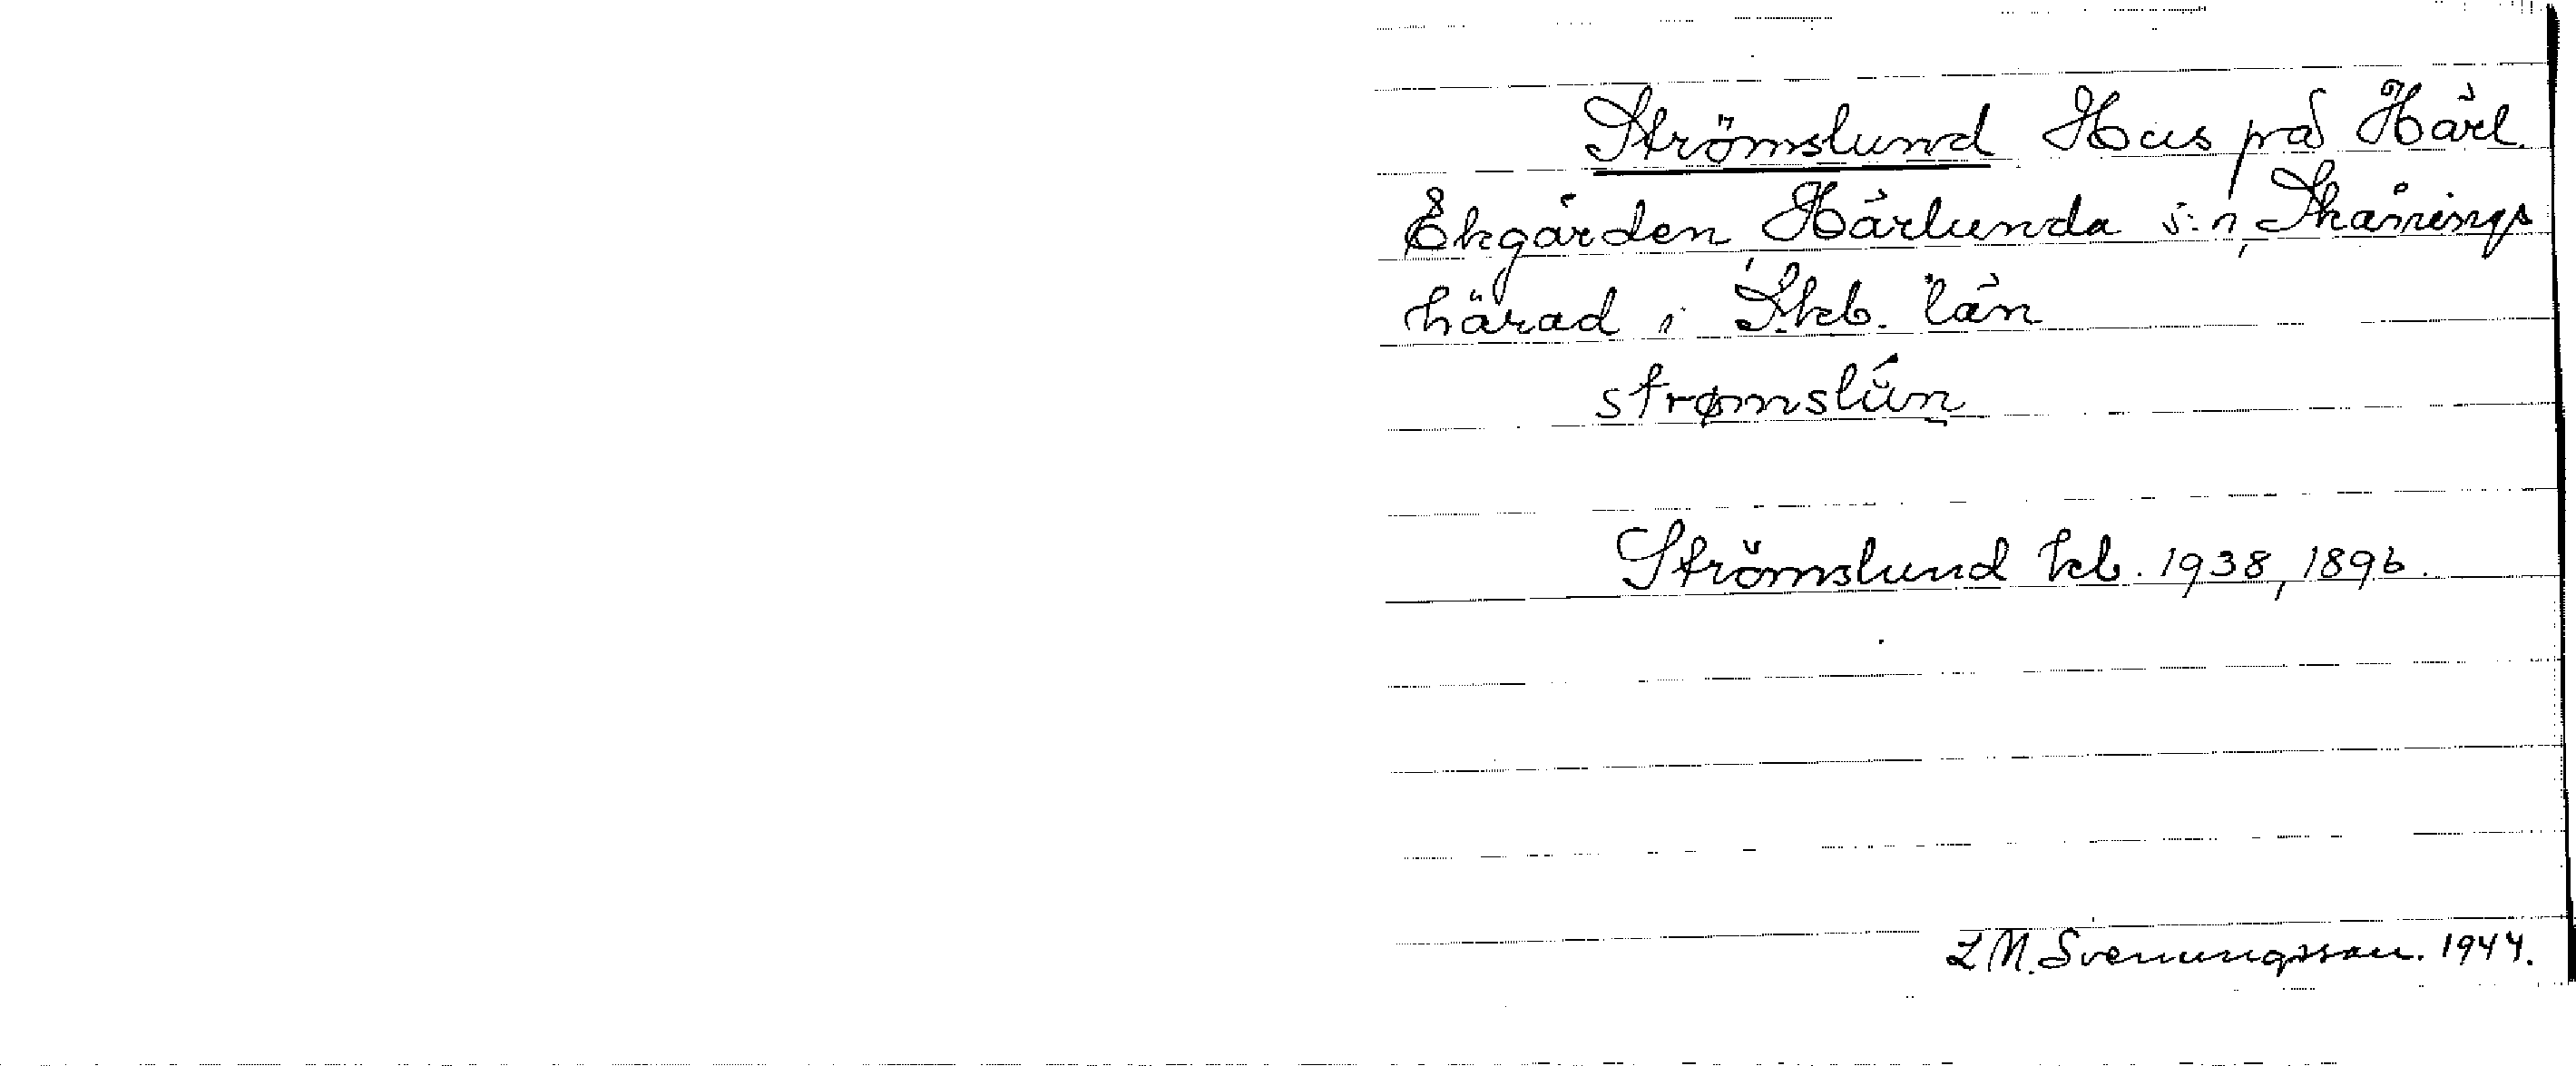 Strömslund Hus på Härl.
Ekgården Härlunda s:n, Skånings
härad i Skb. län
strømslún
Strömslund kb. 1938, 1896.
L M. Svenungsson. 1944.